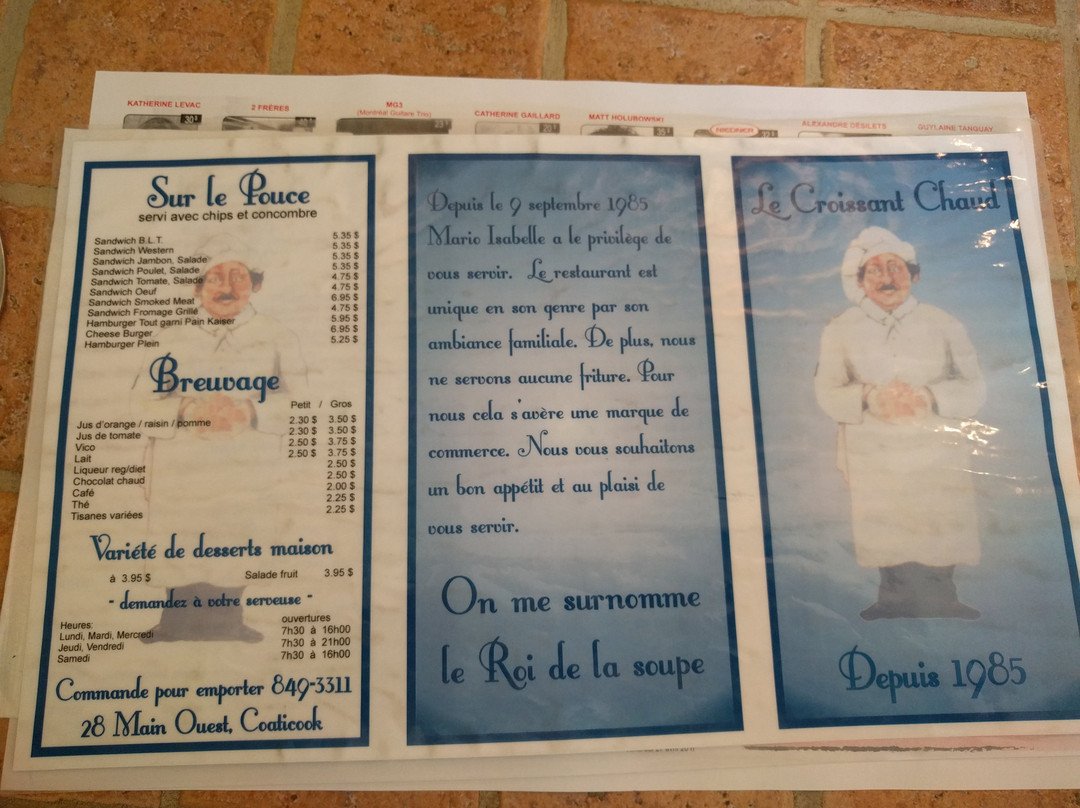 KATHERINE LEVAC
2 FRÈRES
MG3
(Montréal Guitare Trio)
CATHERINE GAILLARD
MATT HOLUBOWSKI
ALEXANDRE DÉSILETS
GUYLAINE TANGUAY
30$
35$
Sur le Pouce
servi avec chips et concombre
Sandwich B.L.T. 5.35 $
Sandwich Western 5.35 $
Sandwich Jambon, Salade 5.35 $
Sandwich Poulet, Salade 5.35 $
Sandwich Tomate, Salade 4.75 $
Sandwich Oeuf 4.75 $
Sandwich Smoked Meat 6.95 $
Sandwich Fromage Grillé 4.75 $
Hamburger Tout garni Pain Kaiser 5.95 $
Cheese Burger 6.95 $
Hamburger Plein 5.25 $
Breuvage
Petit / Gros
Jus d'orange / raisin / pomme 2.30 $ 3.50 $
Jus de tomate 2.30 $ 3.50 $
Vico 2.50 $ 3.75 $
Lait 2.50 $ 3.75 $
Liqueur reg/diet 2.50 $
Chocolat chaud 2.50 $
Café 2.00 $
Thé 2.25 $
Tisanes variées 2.25 $
Variété de desserts maison
à 3.95 $ Salade fruit 3.95 $
- demandez à votre serveuse -
Heures: ouvertures
Lundi, Mardi, Mercredi 7h30 à 16h00
Jeudi, Vendredi 7h30 à 21h00
Samedi 7h30 à 16h00
Commande pour emporter 849-3311
28 Main Ouest, Coaticook
Depuis le 9 septembre 1985
Mario Isabelle a le privilège de
vous servir. Le restaurant est
unique en son genre par son
ambiance familiale. De plus, nous
ne servons aucune friture. Pour
nous cela s'avère une marque de
commerce. Nous vous souhaitons
un bon appétit et au plaisi de
vous servir.
On me surnomme
le Roi de la soupe
Le Croissant Chaud
Depuis 1985